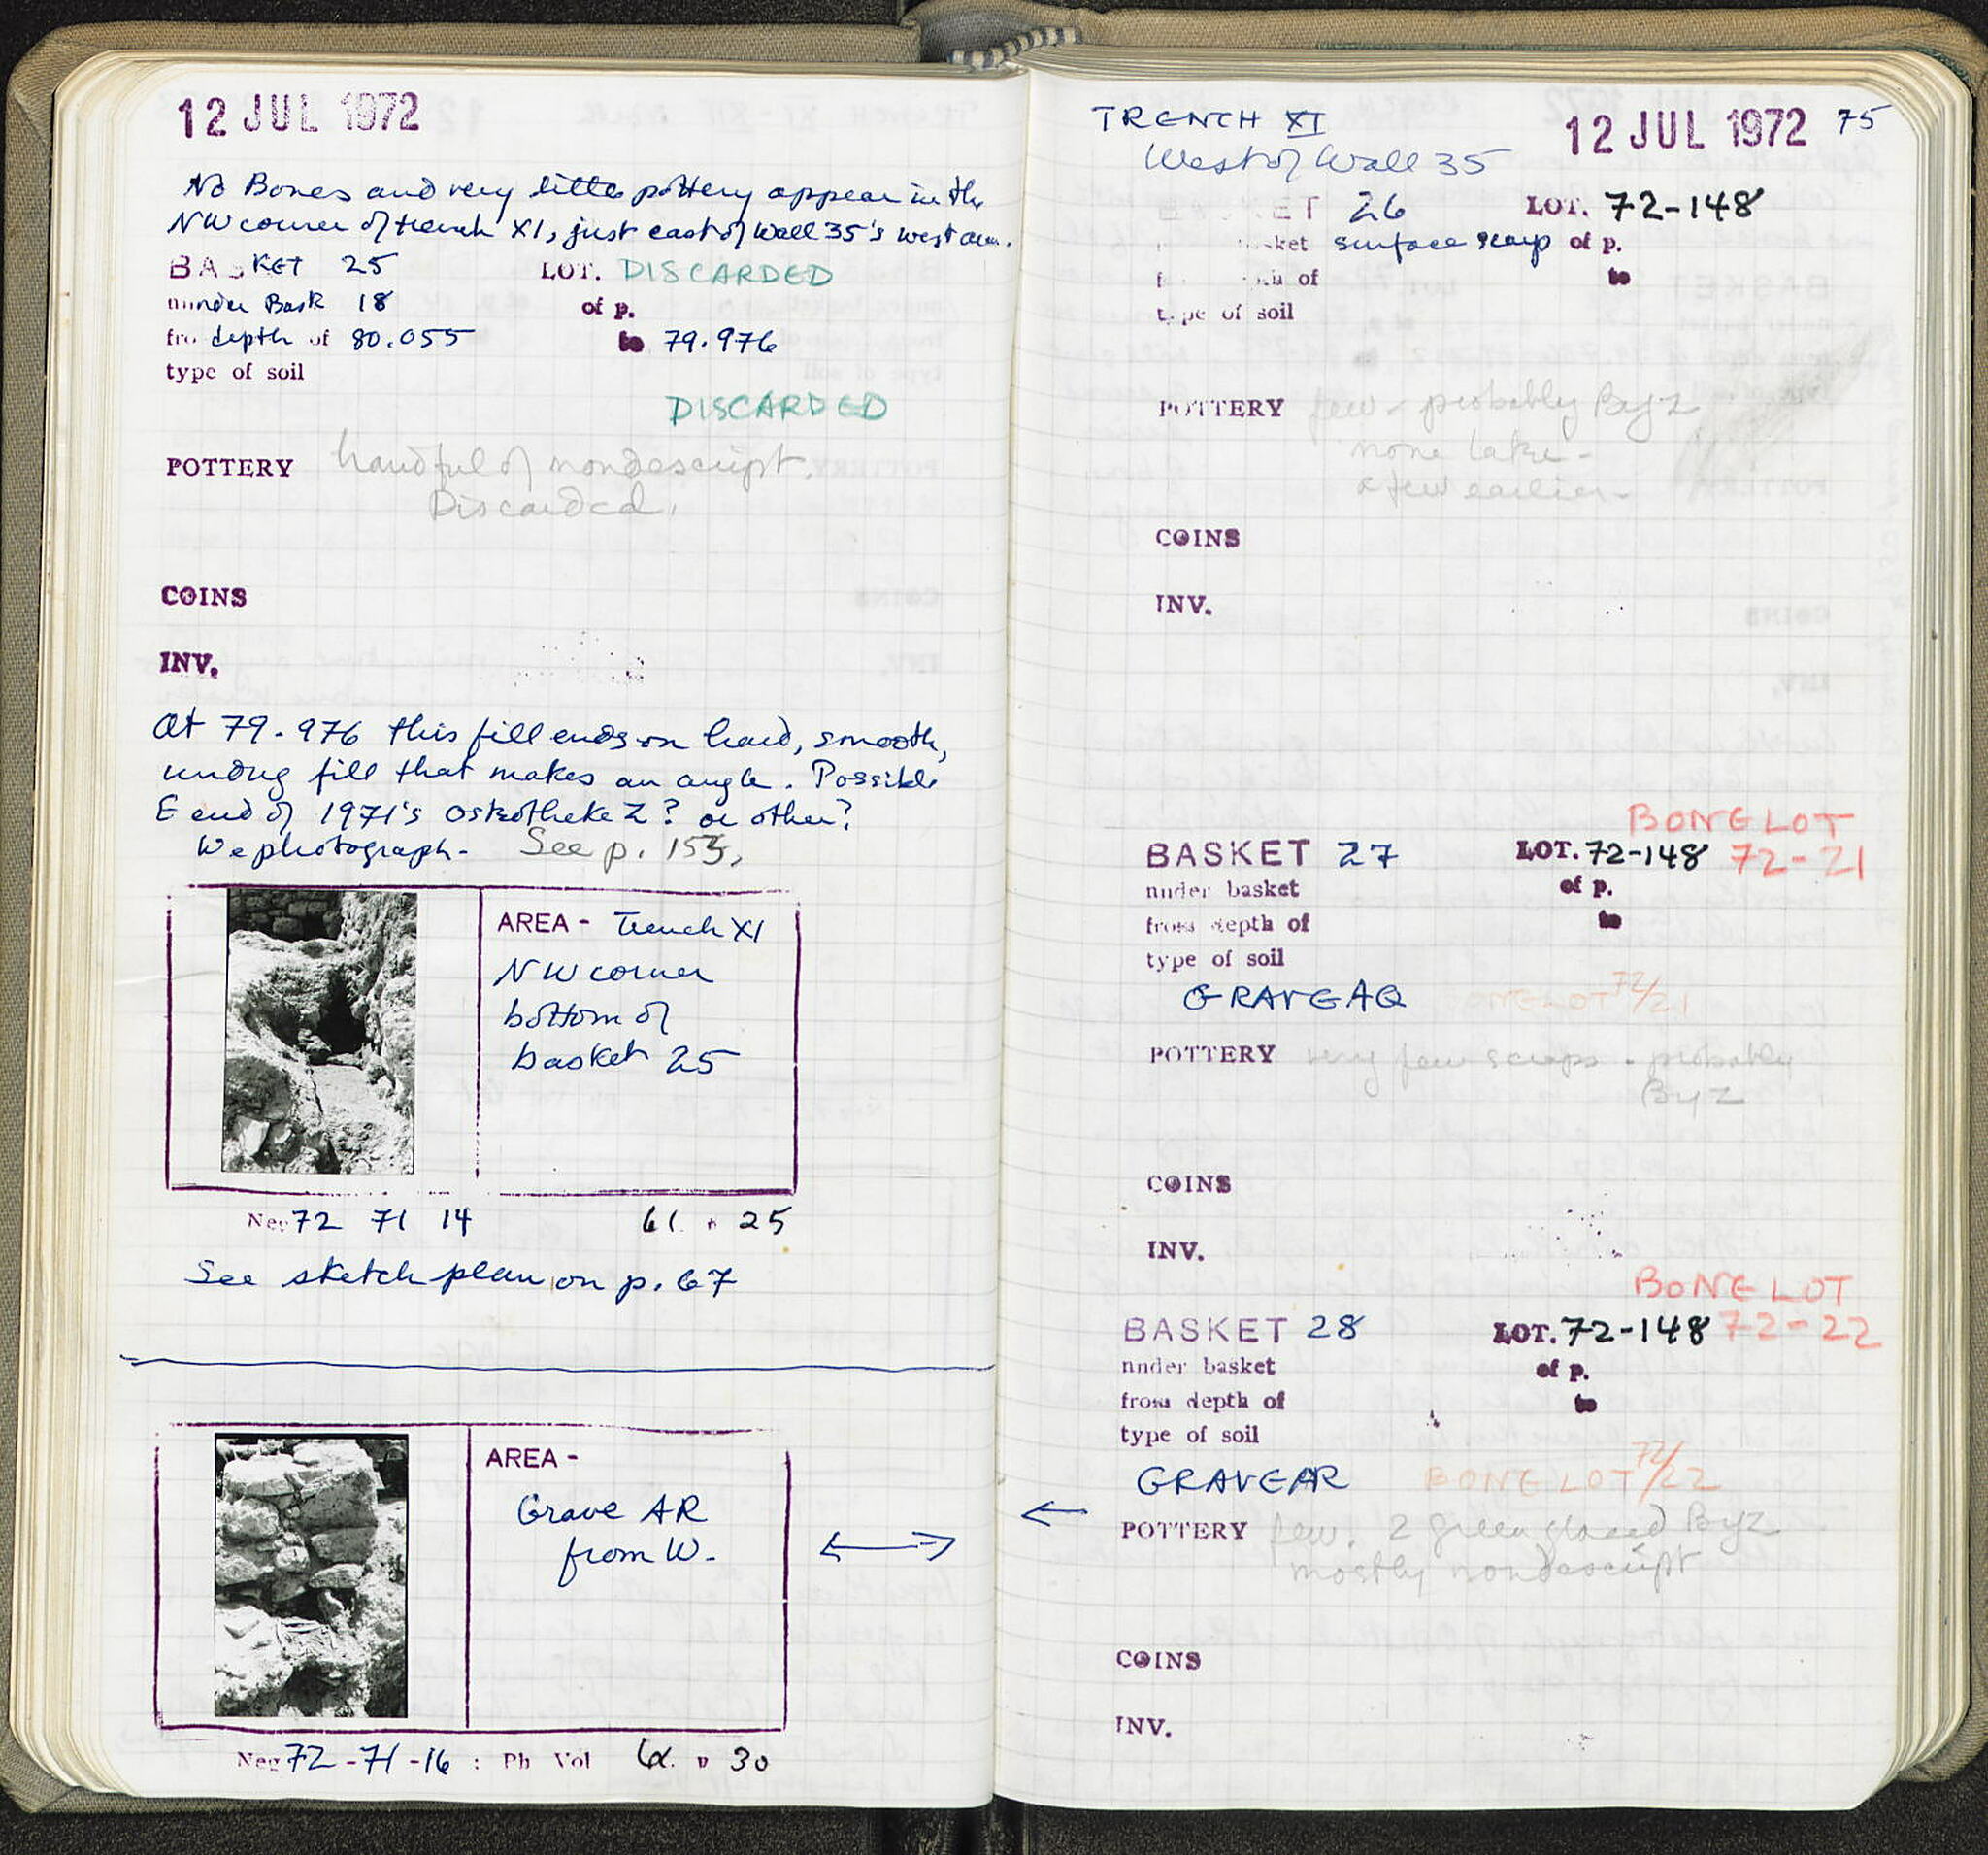 12 JUL 1972
No Bones and very little pottery appear in the
NW corner of trench XI, just east of Wall 35's west arm.
BASKET 25 LOT. DISCARDED
under Bask 18 of p.
fro depth of 80.055 to 79.976
type of soil
DISCARDED
POTTERY handful of nondescript.
Discarded.
COINS
INV.
At 79.976 this fill ends on hard, smooth,
undug fill that makes an angle. Possible
E end of 1971's Osteotheke Z? or other?
We photograph - See p. 153,
AREA - Trench XI
NW corner
bottom of
basket 25
Neg 72 71 14 61 p 25
See sketch plan on p. 67
AREA -
Grave AR
from W.
Neg 72-71-16 : Ph Vol p 30
TRENCH XI 12 JUL 1972 75
West of Wall 35
BASKET 26 LOT. 72-148
basket surface scarp of p.
depth of to
type of soil
POTTERY few - probably Byz
none later -
a few earlier -
COINS
INV.
BONE LOT
BASKET 27 LOT. 72-148 72-21
under basket of p.
from depth of to
type of soil
GRAVE AQ BONE LOT 72/21
POTTERY very few scraps - probably
Byz
COINS
INV.
BONE LOT
BASKET 28 LOT. 72-148 72-22
under basket of p.
from depth of to
type of soil
GRAVE AR BONE LOT 72/22
POTTERY few. 2 green glazed Byz
mostly nondescript
COINS
INV.